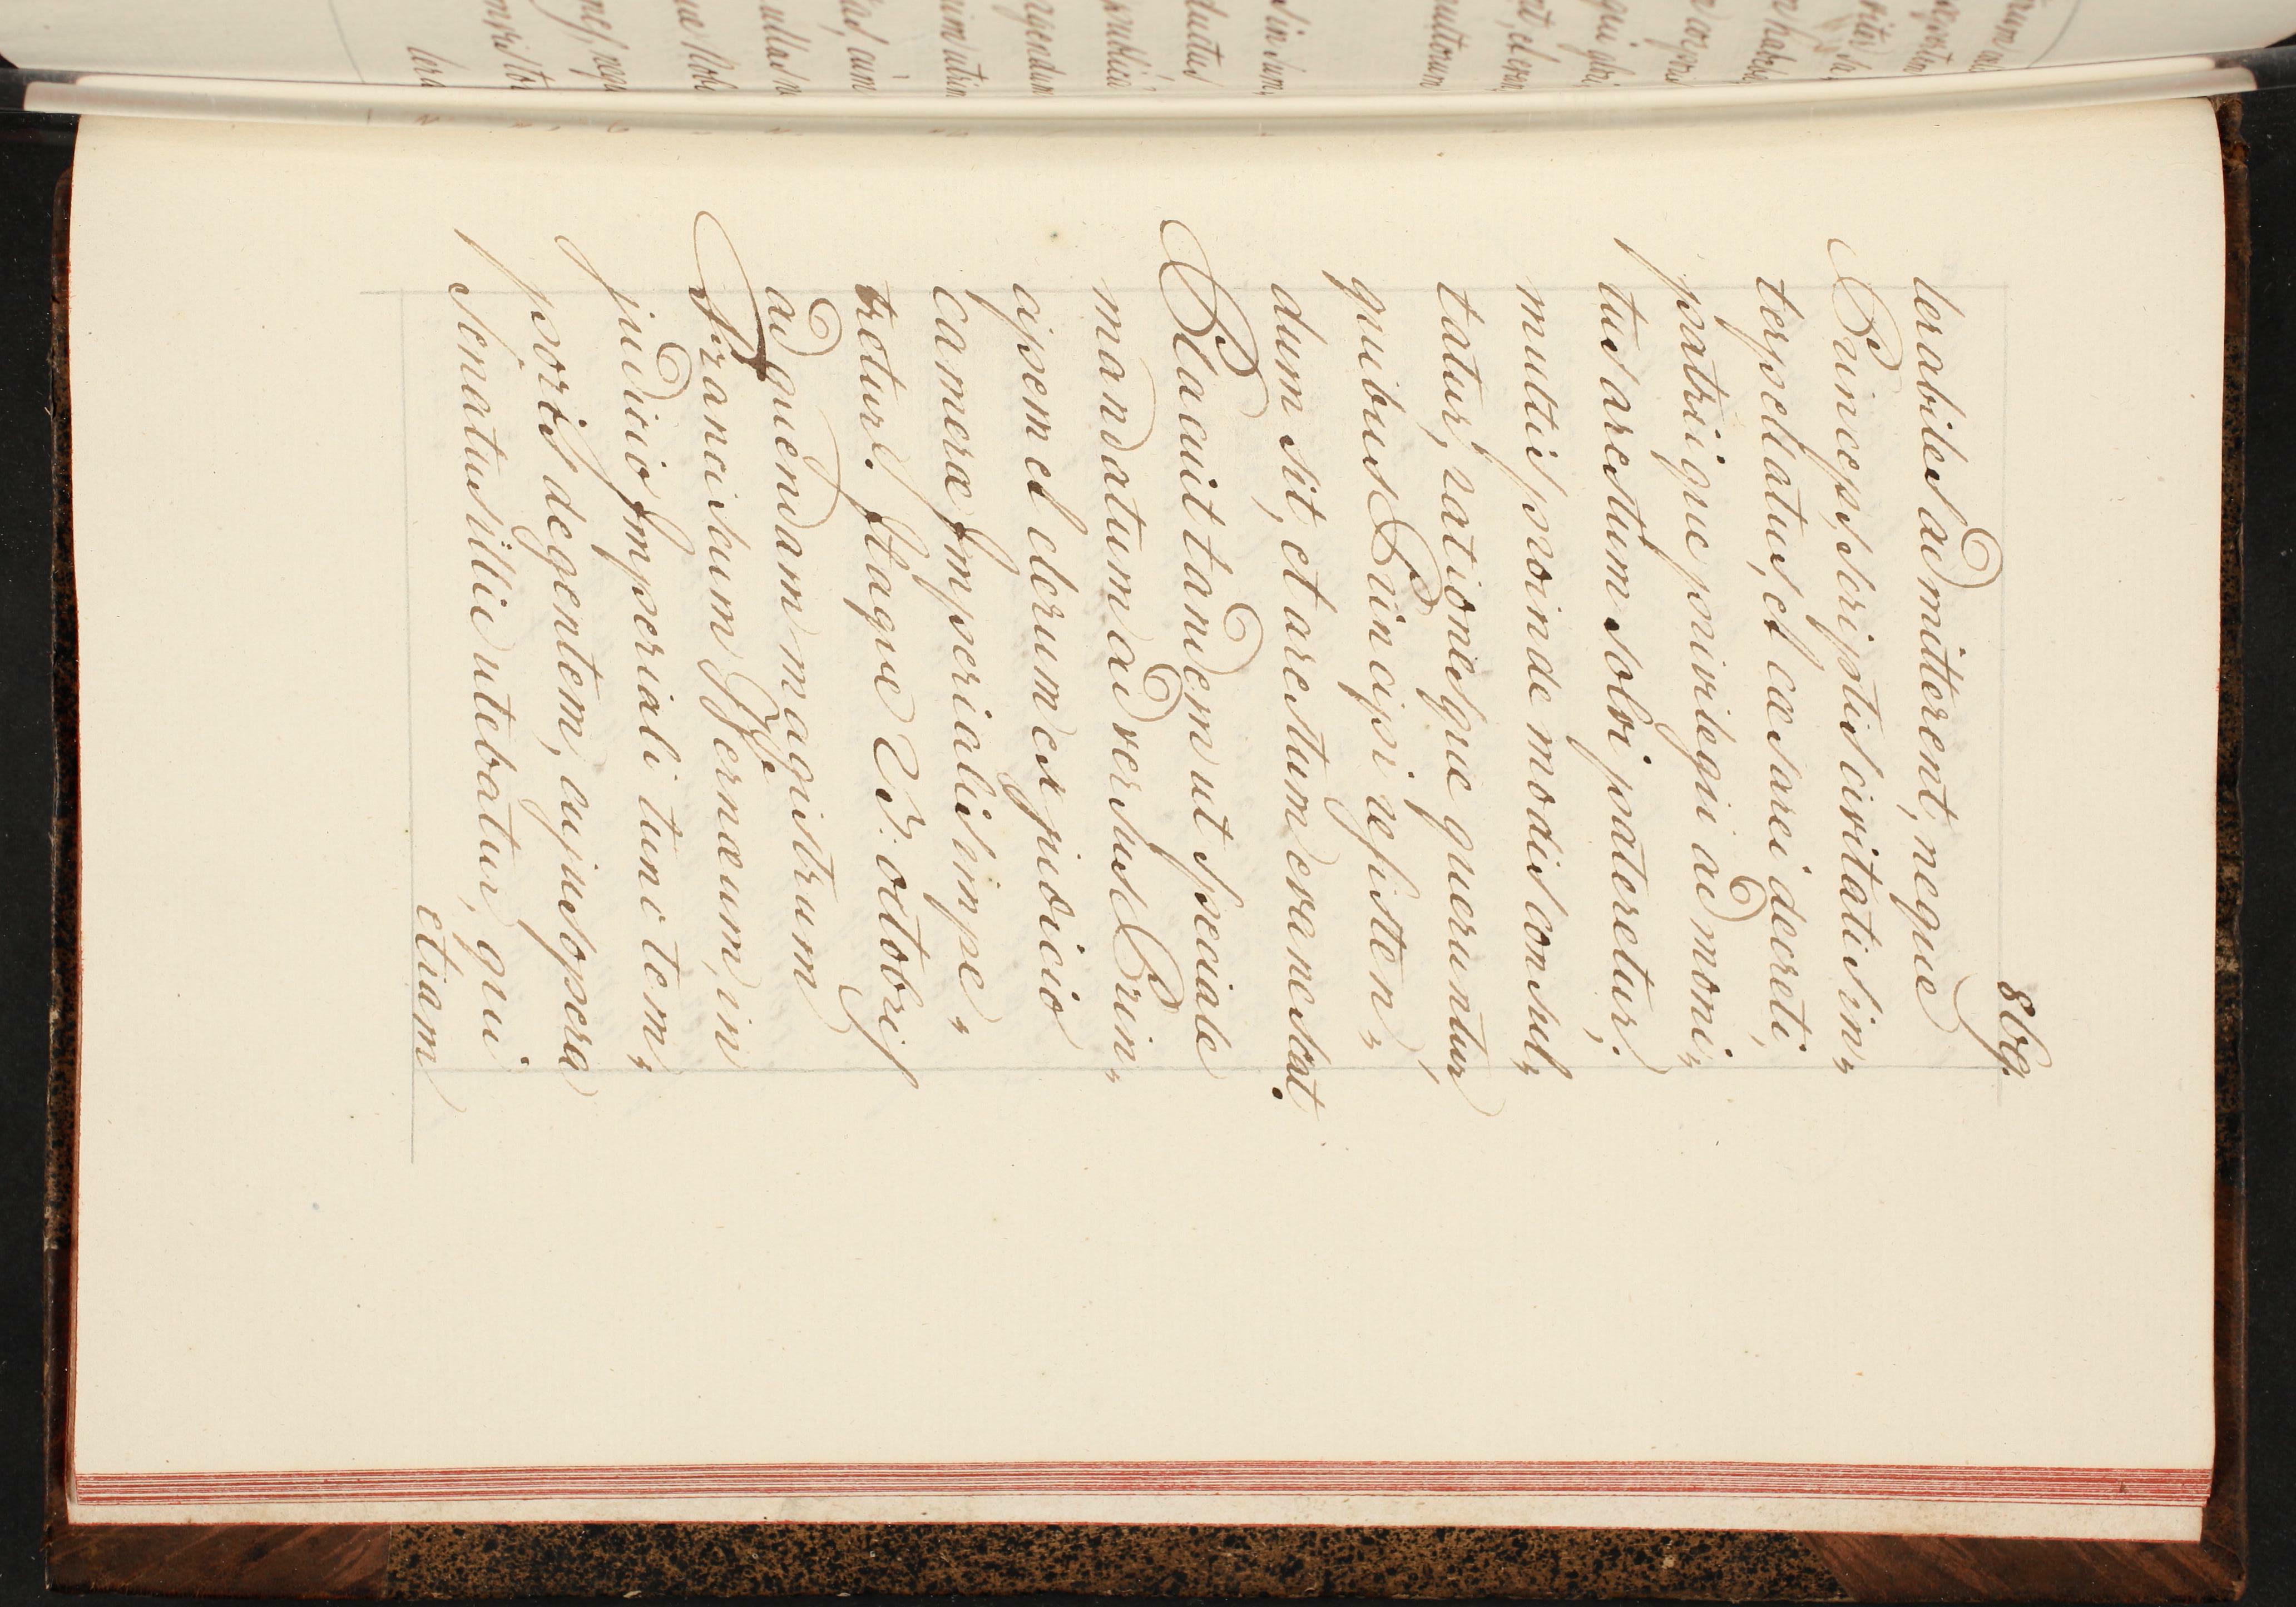 869.
lerabiles admitterent, neque
Princeps, scriptis civitatis in„
terpellatus, et cæsarei decreti,
patriique privilegii admoni„
tus arestum solvi pateretur;
multis proinde modis consul„
tatur, rationesque queruntur,
quibus Principi resisten„
dum sit, et arestum evanescat.
Placuit tandem ut speciale
mandatum adversus Prin„
cipem et clerum ex judicio
Cameræ Imperialis impe„
tretur. Itaque 25. octobris
ad quendam magistrum
Franciscum Bernæum, in
judicio Imperiali tunc tem„
poris degentem, cujus opera
senatus illic utebatur, qui
etiam